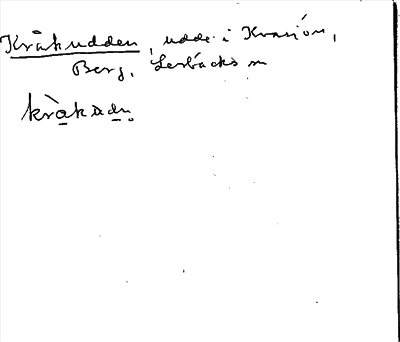 Kråkudden, udde i Kvarsjön,
Berg, Lerbäcks sn
kràkùdn.